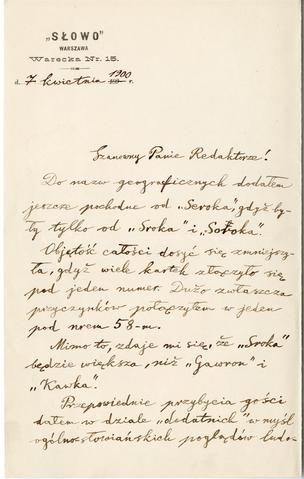 „SŁOWO"
WARSZAWA
Warecka Nr. 15.
d. 7 kwietnia 1900 r.
Szanowny Panie Redaktorze!
Do nazw geograficznych dodałem
jeszcze pochodne od „Seroka", gdyż by-
ły tylko od „Sroka" i „Soroka".
Objętość całości dosyć się zmniejszy-
ła, gdyż wiele kartek złączyło się
pod jeden numer. Dużo zwłaszcza
przyczynków połączyłem w jeden
pod nrem 58-m.
Mimo to, zdaje mi się, że „Sroka"
będzie większa, niż „Gawron" i
„Kawka".
Przepowiednie przybycia gości
dałem w dziale „dodatnich" w myśl
ogólno-słowiańskich poglądów ludo-